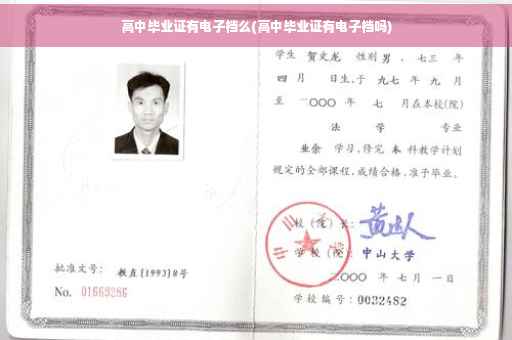 高中毕业证有电子档么(高中毕业证有电子档吗)
学生 贺文龙 性别 男 , 七三 年
四 月 日生,于 九七 年 九 月
至 二〇〇〇 年 七 月在本校(院)
法 学 专业
业余 学习,修完 本 科教学计划
规定的全部课程,成绩合格,准予毕业。
校(院)长:
学校(院): 中山大学
二〇〇〇 年 七 月 一 日
学校编号: 0032482
批准文号: 教直(1993)8号
No. 01663286